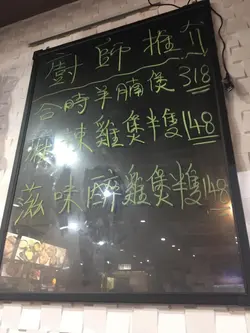 廚師推介
合時羊腩煲 318
辣雞煲半隻 148
滋味醉雞煲半隻 148